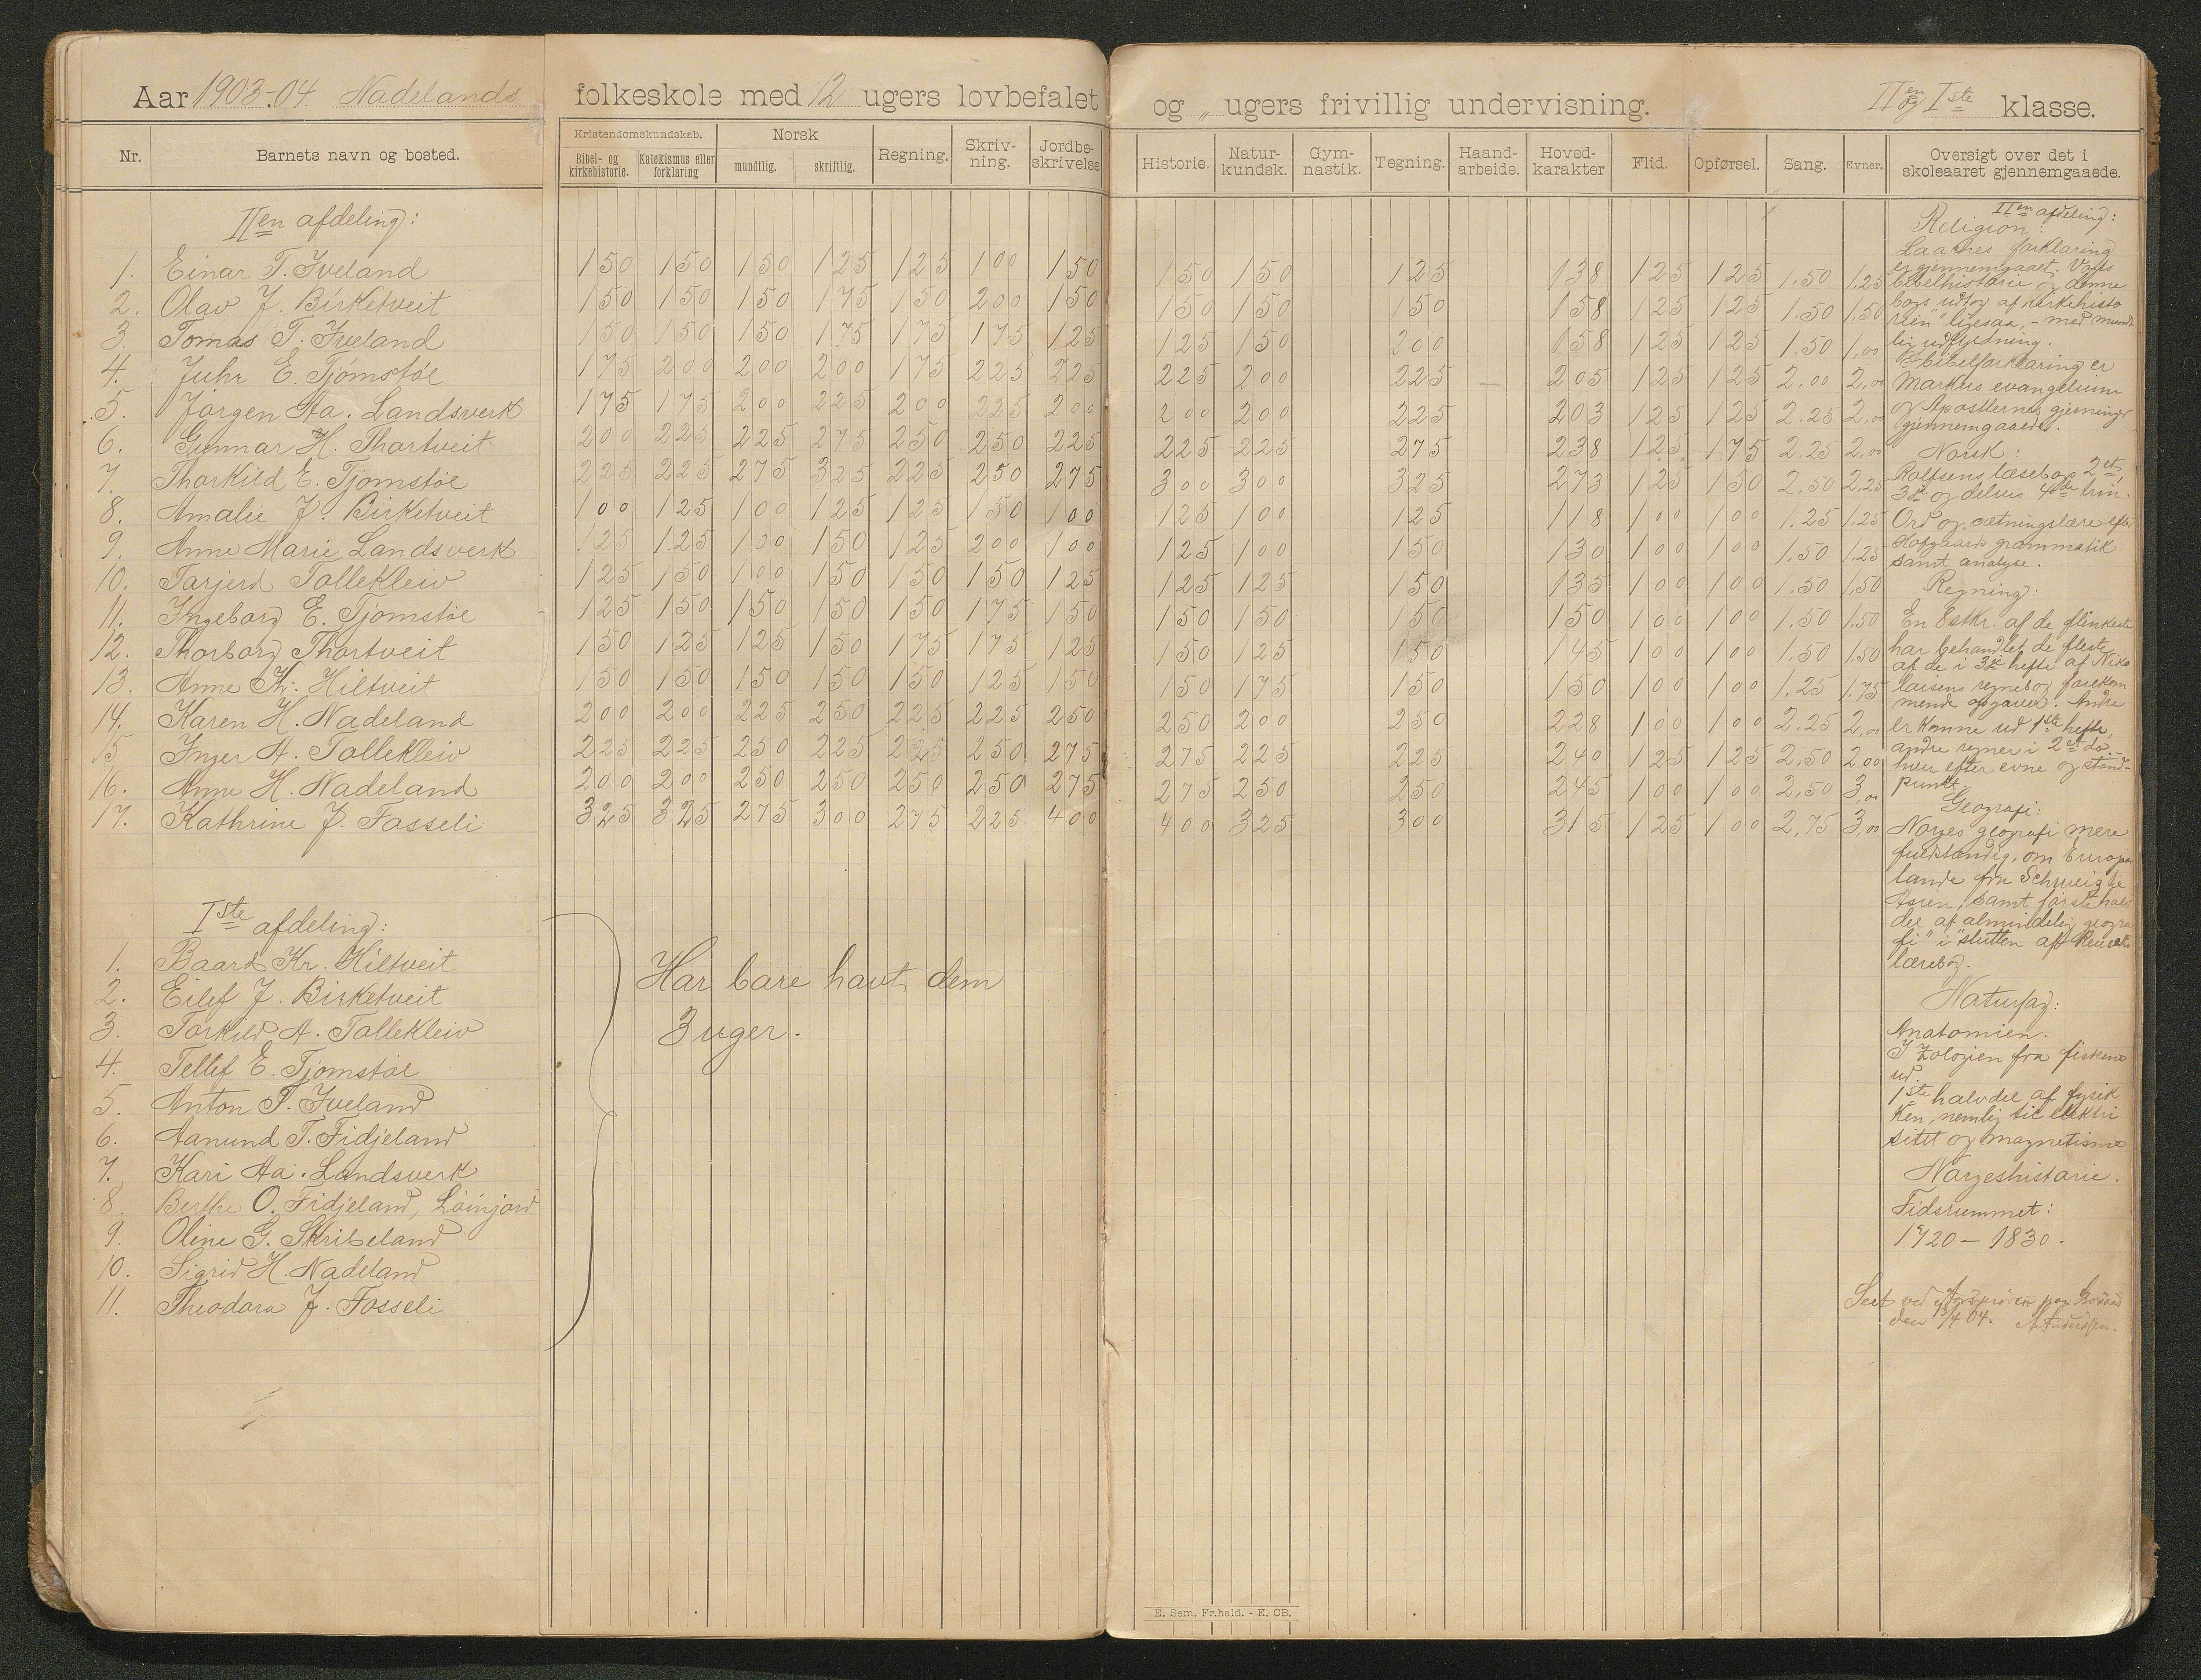 Aar 1903-04. Nadelands folkeskole med 12 ugers lovbefalet og „ ugers frivillig undervisning. IIen og Iste klasse.
Nr. Barnets navn og bosted. Kristendomskundskab. Bibel- og kirkehistorie. Katekismus eller forklaring Norsk mundtlig. skriftlig. Regning. Skriv-ning. Jordbe-skrivelse Historie. Natur-kundsk. Gym-nastik. Tegning. Haand-arbeide. Hoved-karakter Flid. Opførsel. Sang. Evner. Oversigt over det i skoleaaret gjennemgaaede.
IIen afdeling:
1. Einar T. Iveland 150 150 150 125 125 100 150 150 150 125 138 125 125 1.50 1.25
2. Olav J. Birketveit 150 150 150 175 150 200 150 150 150 150 158 125 125 1.50 1.50
3. Tomas T. Iveland 150 150 150 175 175 175 125 125 150 200 158 125 125 1.50 1,00
4. Juhr E. Tjomstøl 175 200 200 200 175 225 225 225 200 225 205 125 125 2.00 2,00
5. Jørgen Aa. Landsverk 175 175 200 225 200 225 200 200 200 225 203 125 125 2.25 2,00
6. Gunnar H. Thortveit 200 225 225 275 250 250 225 225 225 275 238 125 175 2.25 2,00
7. Thorkild E. Tjomstøl 225 225 275 325 225 250 275 300 300 325 273 125 150 2.50 2,25
8. Amalie J. Birketveit 100 125 100 125 125 150 100 125 100 125 118 100 100 1.25 1.25
9. Anne Marie Landsverk 125 125 100 150 125 200 100 125 100 150 130 100 100 1.50 1.25
10. Tarjerd Tollekleiv 125 150 100 150 150 150 125 125 125 150 135 100 100 1.50 1,50
11. Ingeborg E. Tjomstøl 125 150 150 150 150 175 150 150 150 150 150 100 100 1,50 1,50
12. Thorborg Thortveit 150 125 125 150 175 175 125 150 125 150 145 100 100 1.50 1,50
13. Anne Kr. Hiltveit 150 150 150 150 150 125 150 150 175 150 150 100 100 1.25 1.75
14. Karen H. Nadeland 200 200 225 250 225 225 250 250 200 250 228 100 100 2.25 2,00
15 Inger A. Tollekleiv 225 225 250 225 225 250 275 275 225 225 240 125 125 2,50 2,00
16. Anne H. Nadeland 200 200 250 250 250 250 275 275 250 250 245 100 100 2,50 3,00
17. Kathrine J. Fosseli 325 325 275 300 275 225 400 400 325 300 315 125 100 2,75 3,00
Iste afdeling:
1. Baard Kr. Hiltveit
2. Eilef J. Birketveit
3. Torkild A. Tollekleiv
4. Tellef E. Tjomstøl
5. Anton T. Iveland
6. Aanund T. Fidjeland
7. Kari Aa. Landsverk
8. Berthe O. Fidjeland,
9. Oline G. Skribeland
10. Sigrid H. Nadeland
11. Theodora J. Fosseli
Har bare havt dem
3 uger.
IIen afdeling:
Religion:
forklaring
er gjennemgaaet. Vogts
bibelhistorie og denne
bogs udtog af kirkehisto
rien" ligesaa, - med mundt
lig udfyldning.
I bibelforklaring er
Markus evangelium
og Apostlernes gjerninger
gjennemgaaede.
Norsk:
Rolfsens læsebogs 2et,
3die og delvis 4de trin.
Ord og sætningslære efter
Hofgaards grammatik
samt analyse.
Regning:
En 8 stkr. af de flinkeste
har behandlet de fleste
af de i 3die hefte af Niko
laisens regnebog forekom
mende opgaver. Andre
er komne ud 1ste hefte,
andre regner i 2et do. -
hver efter evne og stand-
punkt.
Geografi:
Norges geografi mere
fuldstændig, om Europas
lande fra Schweig til
Asien, samt første halv
del af almindelig geogra
fi" i slutten af
lærebog.
Naturfag:
Anatomien.
I zologien fra fiskene
ud.
1ste halvdel af fysik
ken, nemlig til elektri
sitet og magnetisme
Norgeshistorie.
Tidsrummet:
1720 - 1830.
Seet ved
den 13/4 04.
E. Sem, Fr.hald. - E. CB.